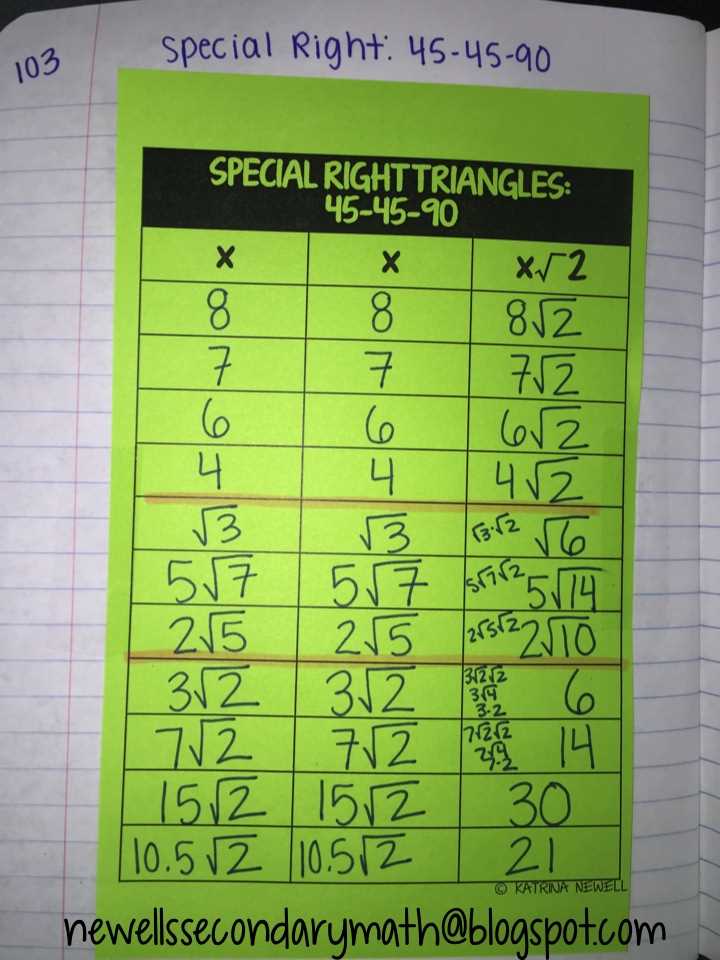 103
Special Right: 45-45-90
SPECIAL RIGHT TRIANGLES:
45-45-90
x x x√2
8 8 8√2
7 7 7√2
6 6 6√2
4 4 4√2
√3 √3 √3·√2 √6
5√7 5√7 5√7√2 5√14
2√5 2√5 2√5√2 2√10
3√2 3√2 3√2√2 6
3√4
3·2
7√2 7√2 7√2√2 14
7√4
7·2
15√2 15√2 30
10.5√2 10.5√2 21
© KATRINA NEWELL
newellssecondarymath@blogspot.com